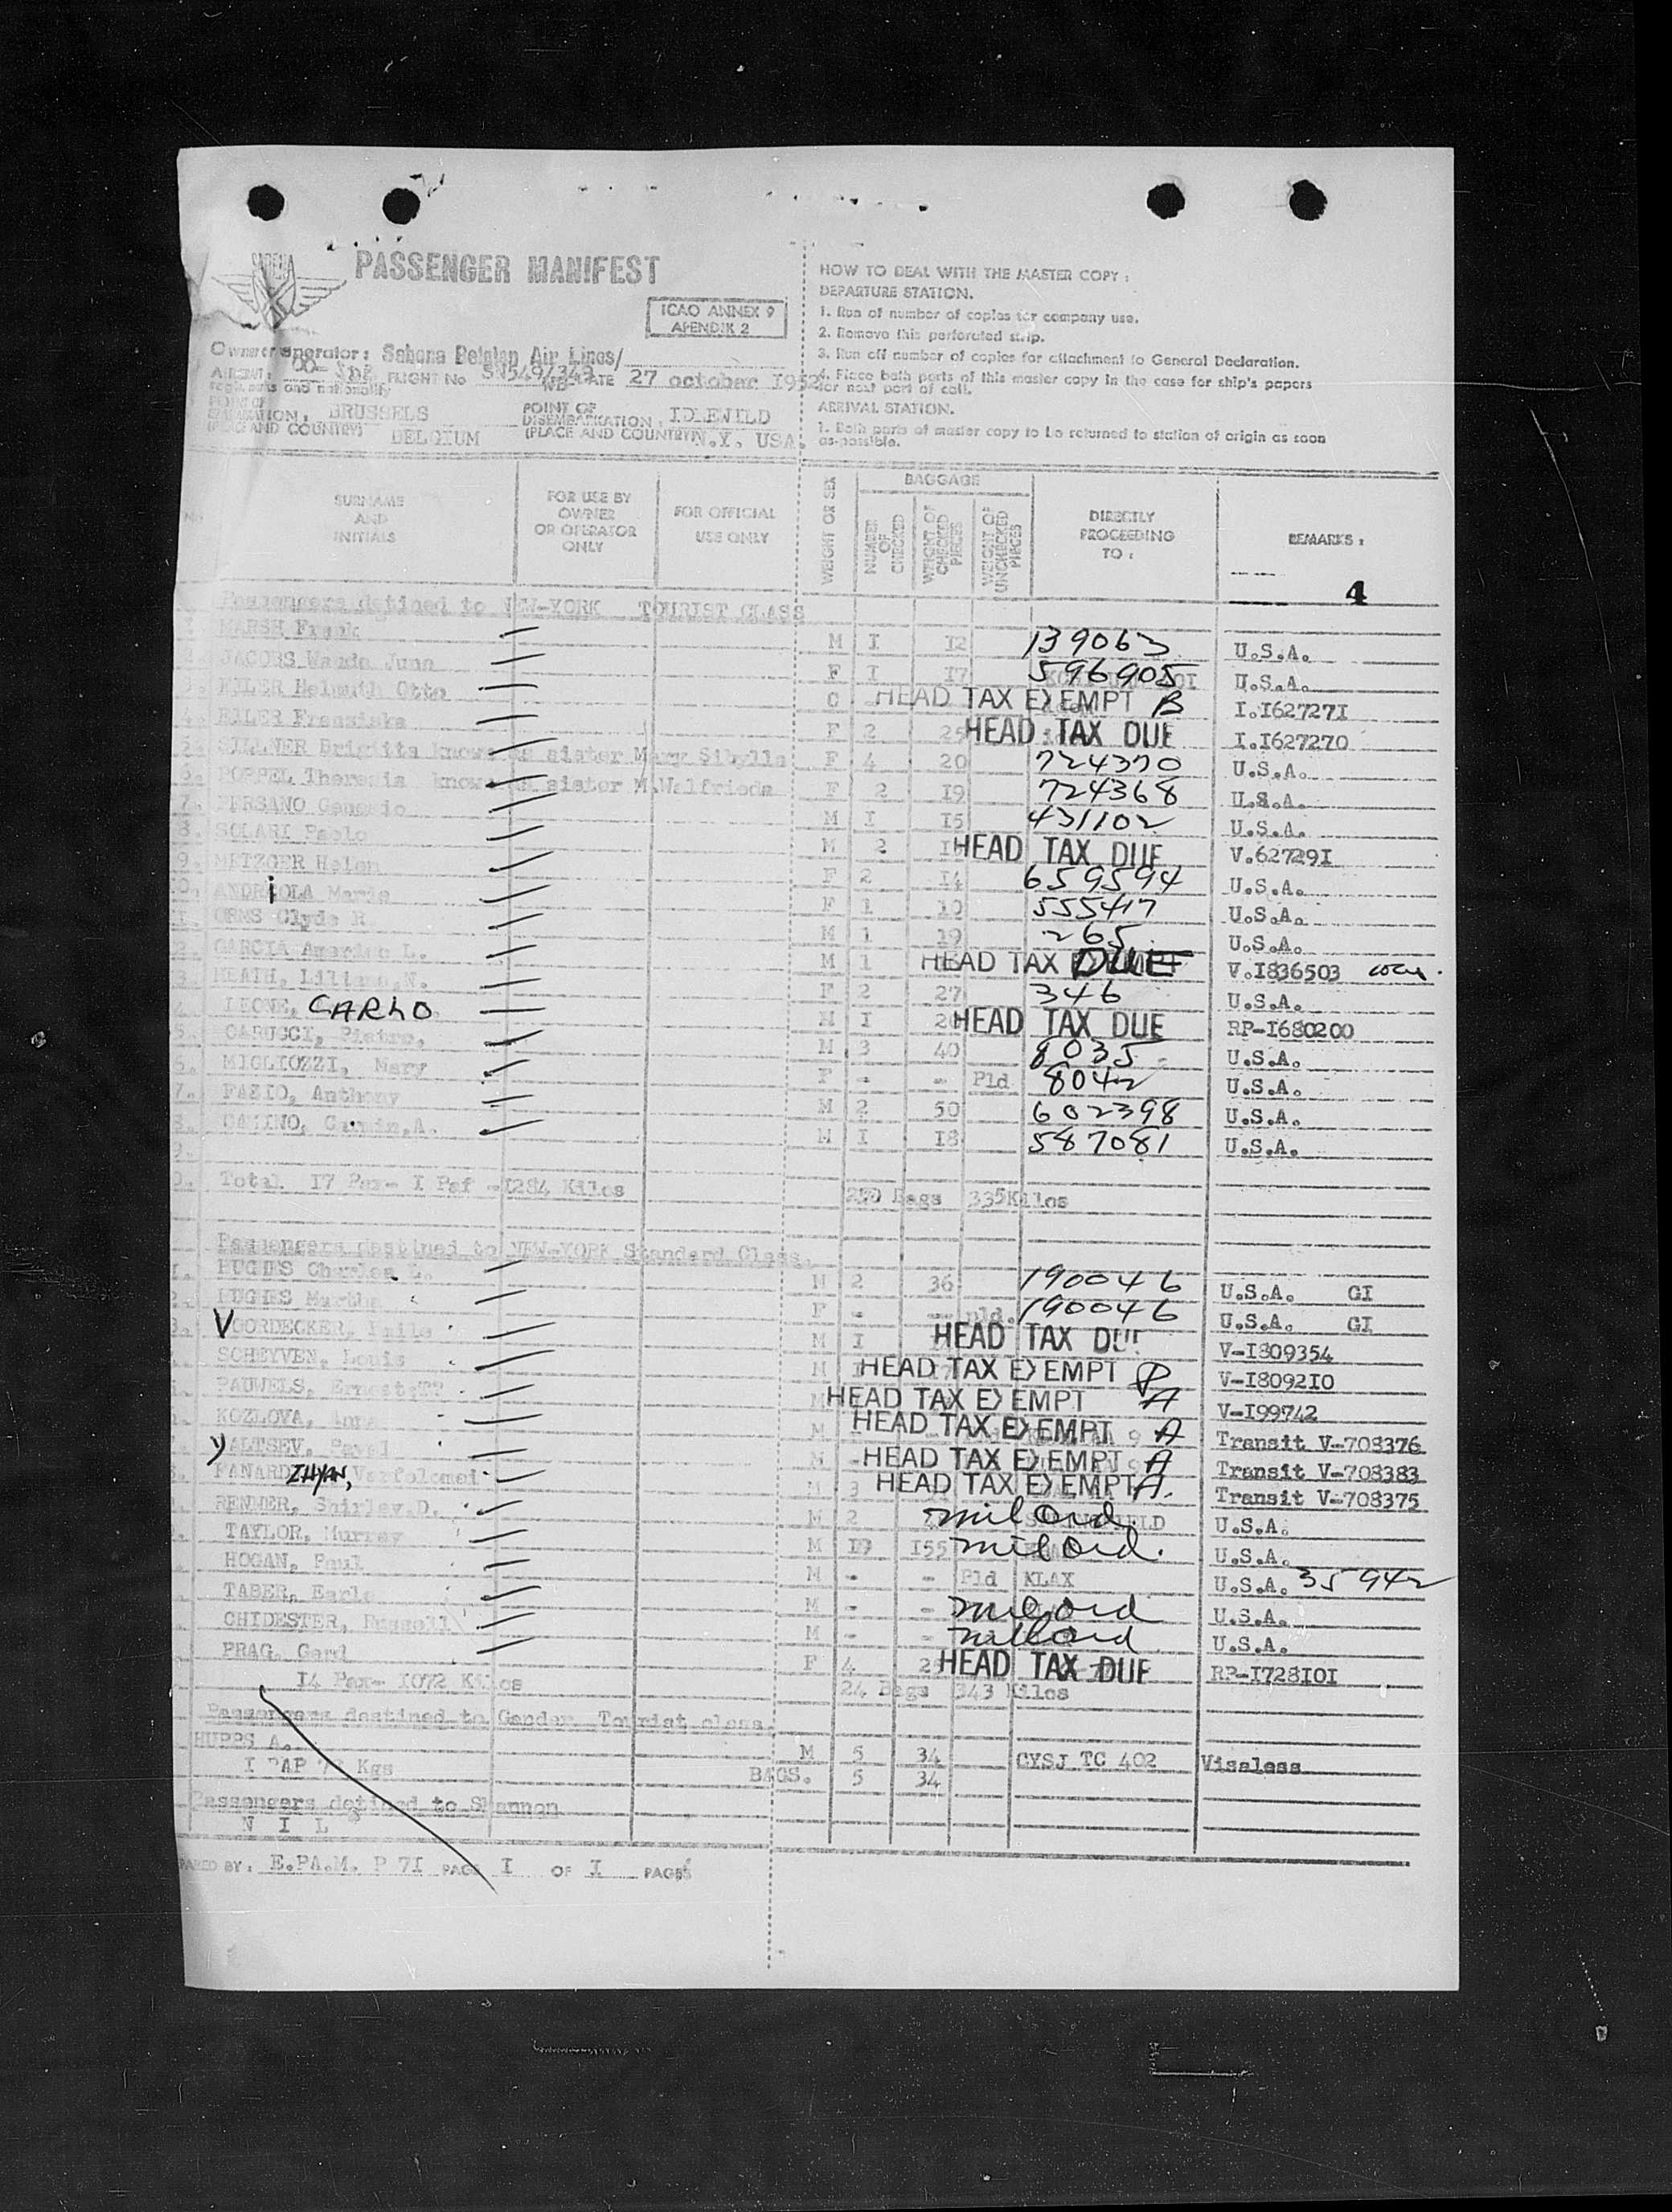 SABENA
PASSENGER MANIFEST
ICAO ANNEX 9
APENDIK 2
Owner or operator: Sabena Belgian Air Lines/
FLIGHT No SN549/349 DATE 27 october 1952
regis. marks and nationality
POINT OF EMBARKATION, BRUSSELS
(PLACE AND COUNTRY) BELGIUM
POINT OF DISEMBARKATION, IDLEWILD
(PLACE AND COUNTRY) N.Y. USA.
HOW TO DEAL WITH THE MASTER COPY :
DEPARTURE STATION.
1. Run of number of copies for company use.
2. Remove this perforated strip.
3. Run off number of copies for attachment to General Declaration.
4. Place both parts of this master copy in the case for ship's papers
for next port of call.
ARRIVAL STATION.
1. Both parts of master copy to be returned to station of origin as soon
as possible.
No. SURNAME AND INITIALS
FOR USE BY OWNER OR OPERATOR ONLY
FOR OFFICIAL USE ONLY
WEIGHT OR SEX
BAGGAGE
NUMBER OF CHECKED
WEIGHT OF CHECKED PIECES
WEIGHT OF UNCHECKED PIECES
DIRECTLY PROCEEDING TO :
REMARKS :
4
Passengers detined to NEW-YORK TOURIST CLASS
1 MARSH Frank M I I2 139063 U.S.A.
2. JACOBS Wanda June F I I7 596905 U.S.A.
3. EILER Helmuth Otto C - HEAD TAX EXEMPT B I.I62727I
4. EILER Franziska F 2 25 HEAD TAX DUE I.I627270
5. Brigitta known as sister Mary Sibylla F 4 20 724370 U.S.A.
6. POPPEL Theresia known as sister M.Walfrieda F 2 I9 724368 U.S.A.
7. PERSANO Genesio M I I5 431102 U.S.A.
8. SOLARI Paolo M 2 HEAD TAX DUE V.62729I
9. METZGER Helen F 2 I4 659594 U.S.A.
10. ANDRiOLA Marie F 1 10 555417 U.S.A.
11. ORMS Clyde R M 1 19 265 U.S.A.
12. GARCIA Americo L. M 1 HEAD TAX DUE V.I836503
13. HEATH, Lillian,N. F 2 27 346 U.S.A.
14. LEONE, CARLO M I HEAD TAX DUE RP-I680200
15. CARUCCI, Pietro, M 3 40 8035 U.S.A.
16. MIGLIOZZI, Mary F - - Pld 8042 U.S.A.
17. FAZIO, Anthony M 2 50 602398 U.S.A.
18. Carmin,A. M I I8 587081 U.S.A.
19.
20. Total I7 Pax- I Paf -I284 Kilos Bags 335Kilos
Passengers destined to NEW-YORK Standard Class.
HUGHES Charles L. M 2 36 190046 U.S.A. GI
HUGHES Martha F - - pld. 190046 U.S.A. GI
VOORDECKER, Emile M I HEAD TAX DUE V-I809354
SCHEYVEN, Louis M I HEAD TAX EXEMPT V-I8092I0
PAUWELS, Ernest M HEAD TAX EXEMPT A V-I99742
KOZLOVA, Anna HEAD TAX EXEMPT A Transit V-708376
YALTSEV, Pavel M - HEAD TAX EXEMPT A Transit V-708383
ZHYAN, Varfolomei M 3 HEAD TAX EXEMPT A. Transit V-708375
RENNER, Shirley,D. M 2 mil ord U.S.A.
TAYLOR, Murray M I55 mil ord. U.S.A.
HOGAN, Paul M - - Pld KLAX U.S.A. 35942
TABER, Earle M - - mil ord U.S.A.
CHIDESTER, Russell M - - mil ord U.S.A.
PRAG, Gerd F 4 HEAD TAX DUE RP-I728I0I
I4 Pax- I072 Kilos 24 Bags 343 Kilos
Passengers destined to Gander Tourist class.
HUPPS A. M 5 34 CYSJ TC 402 Visaless
I PAP Kgs BAGS. 5 34
Passengers detined to Shannon
N I L
PREPARED BY: E.PA.M. P 7I PAGE I OF I PAGES